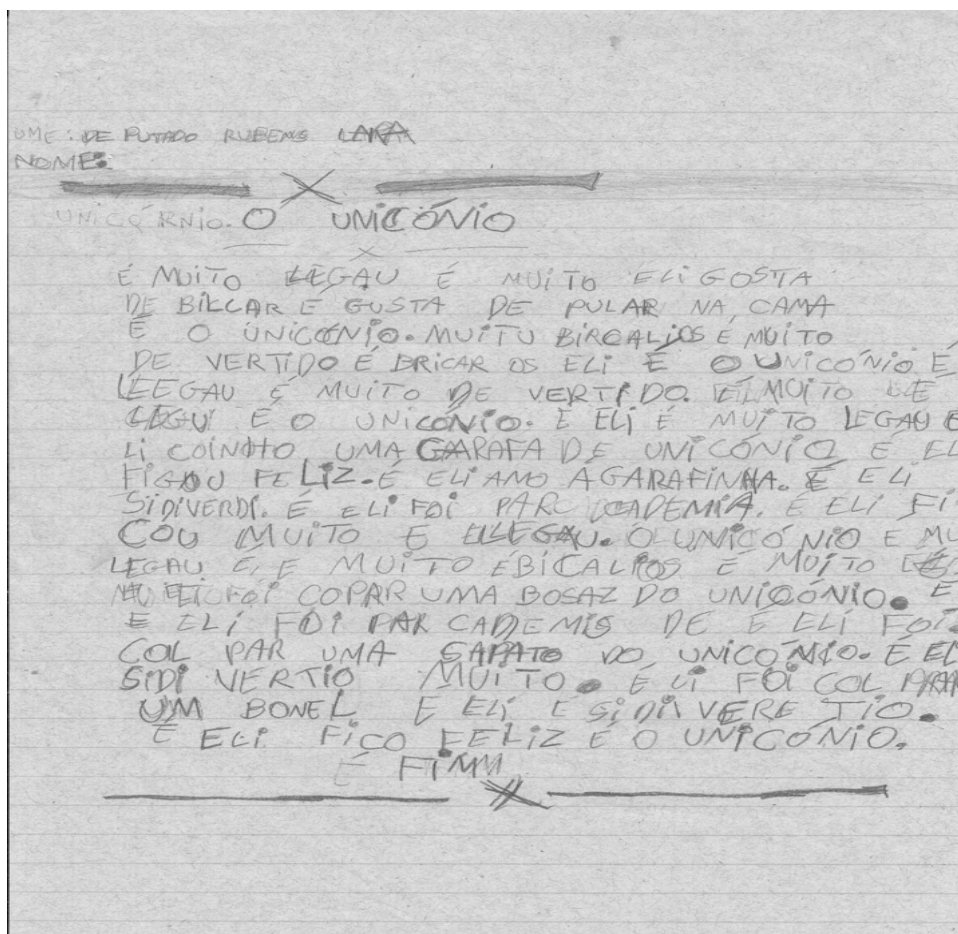 UME: DE PUTADO RUBENS LARA
NOME:
UNICÓRNIO. O UNICÓNIO
É MUITO LEGAU É MUITO ELI GOSTA
DE BILCAR E GUSTA DE PULAR NA CAMA
É O UNICÓNIO. MUITU BIRCALIOS E MUITO
DE VERTIDO É BRICAR OS ELI É O UNICÓNIO É
LEEGAU É MUITO DE VERTIDO. MUITO
LEGU É O UNICÓNIO. E ELI É MUITO LEGAU E
LI COINDTO UMA GARAFA DE UNICÓNIO E EL
FIGOU FELIZ. É ELI AMO A GARAFINHA. E ELI
SIDIVERDI. É ELI FOI PARC CADEMIA. E ELI FI
COU MUITO E LEGAU. O UNICÓNIO E MU
LEGAU E, E MUITO EBICALIOS E MUITO
FOI COPAR UMA BOSAZ DO UNICÓNIO. E
E ELI FOI PAR CADEMIS DE E ELI FOI
COL PAR UMA SAPATO DO UNICÓNIO. É ELI
SIDI VERTIO MUITO. E LI FOI COL PARAR
UM BONEL E ELI E SIDI VERE TIO.
E ELI FICO FELIZ É O UNICÓNIO.
É FIMM